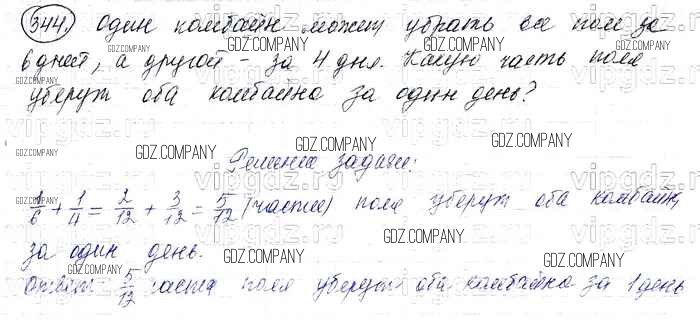 344. Один комбайн может убрать все поле за
6 дней, а другой - за 4 дня. Какую часть поля
уберут оба комбайна за один день?
Решение задачи:
1/6 + 1/4 = 2/12 + 3/12 = 5/12 (части) поля уберут оба комбайн
за один день.
Ответ 5/12 части поля уберут оба комбайна за 1 день
GDZ.COMPANY
GDZ.COMPANY
GDZ.COMPANY
GDZ.COMPANY
GDZ.COMPANY
GDZ.COMPANY
GDZ.COMPANY
GDZ.COMPANY
GDZ.COMPANY
GDZ.COMPANY
GDZ.COMPANY
GDZ.COMPANY
GDZ.COMPANY
GDZ.COMPANY
vipgdz.ru